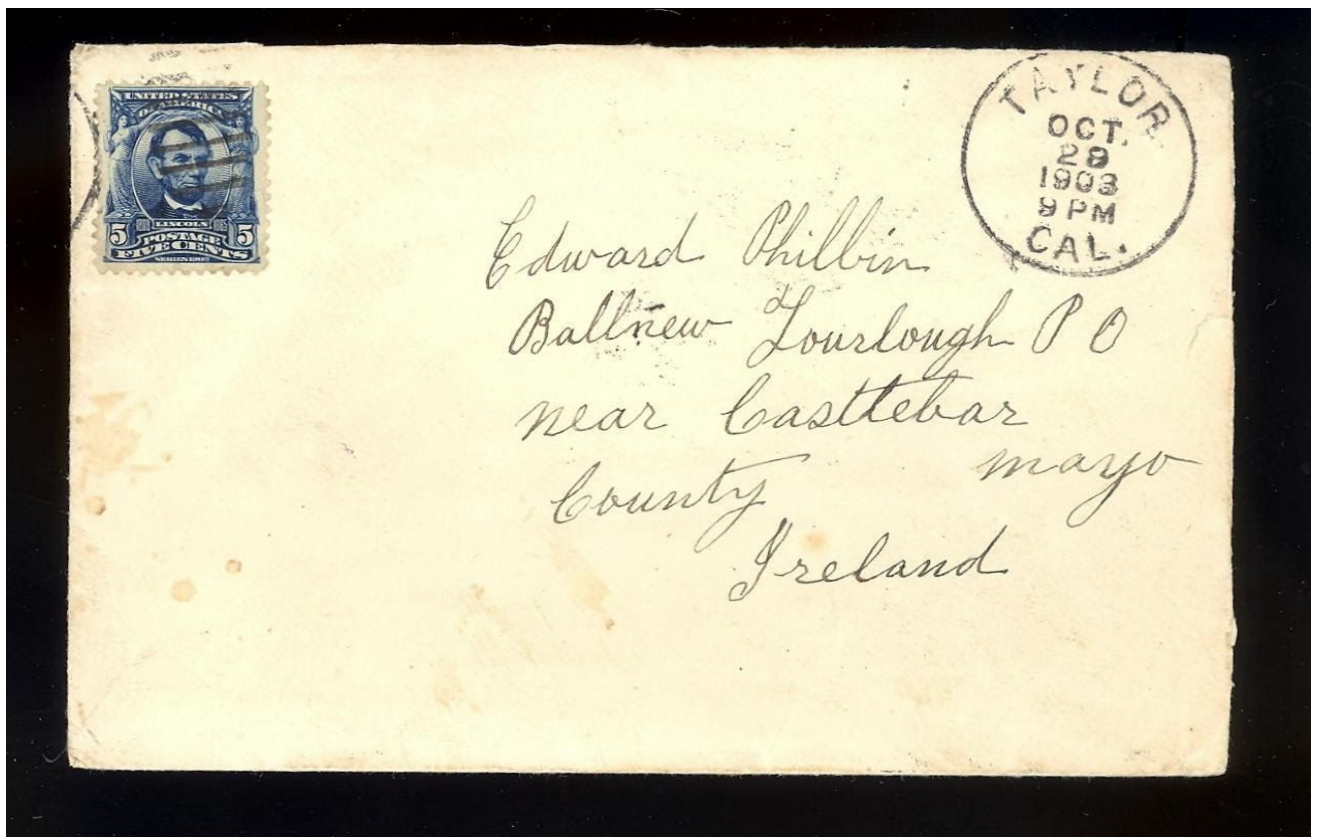 UNITED STATES
OF AMERICA
LINCOLN
5 POSTAGE 5
FIVE CENTS
SERIES 1902
TAYLOR
OCT.
28
1903
9 PM
CAL.
Edward Philbin
Ballnew Tourlough P O
near Casttebar
County mayo
Ireland